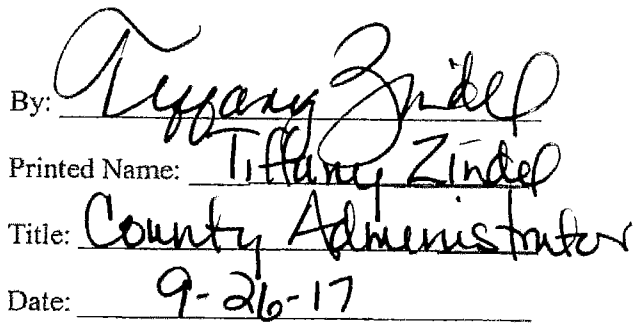 By: Tiffany Zindel
Printed Name: Tiffany Zindel
Title: County Administrator
Date: 9-26-17